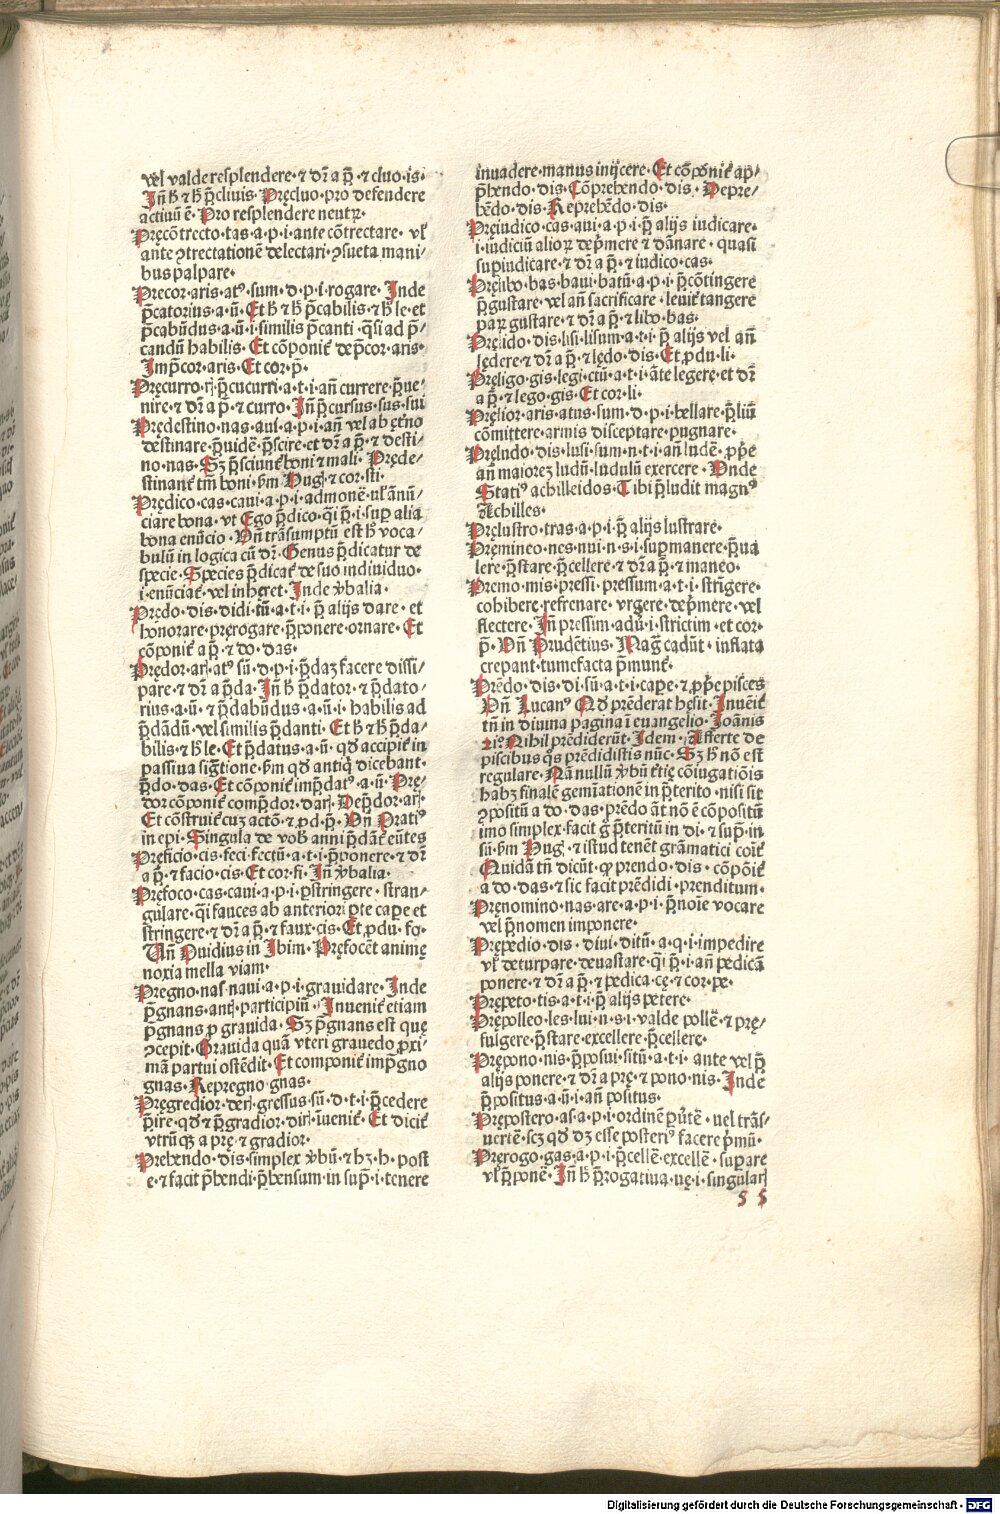 vel valde resplendere·⁊ dr̄ a p̄·⁊ cluo·is·
Jn̄ h̄ ⁊ h̄ p̄cliuis·Pręcluo·pro defendere
actiuū ē·Pro resplendere neutꝝ·
Pręcōtrecto·tas·a·p·i·ante cōtrectare·vl̄
ante ꝯtrectationē delectari·ꝯsueta mani/
bus palpare·
Precor·aris·atꝰ·sum·d·p·i·rogare·Jnde
p̄catorius·a·ū·Et h̄ ⁊ h̄ p̄cabilis·⁊ h̄ le·et
p̄cabūdus·a·ū·i·similis p̄canti·q̄si ad p̄/
candū habilis·Et cōponit̄ de p̄cor·aris·
Jmp̄cor·aris·Et cor·p̄·
Pręcurro·rꝭ·p̄cucurri·a·t·i·an̄ currere·p̄ue/
nire·⁊ dr̄ a p̄·⁊ curro·Jn̄ p̄cursus·sus·sui
Prędestino·nas·aui·a·p·i·an̄ vel ab ęt̄no
destinare·p̄uidē·p̄scire·et dr̄ a p̄·⁊ desti/
no·nas·Sꝫ p̄sciunt̄ boni ⁊ mali·Pręde/
stinant̄ tm̄ boni·ẜm Huḡ·⁊ cor·sti·
Prędico·cas·caui·a·p·i·admonē·vl̄ ānū/
ciare bona·vt Ego p̄dico·qͥ p̄·i·suꝑ alia
bona enūcio·Vn̄ trāsumptū est h̄ voca/
bulū in logica cū dr̄·Genus p̄dicatur de
specie·Species p̄dicat̄ de suo indiuiduo·
i·enūciat̄·vel inheret·Jnde v̄balia·
Prędo·dis·didi·tū·a·t·i·p̄ alijs dare·et
honorare·pręrogare·p̄ponere·ornare·Et
cōponit̄ a p̄·⁊ do·das·
Prędor·arꝭ·atꝰ sū·d·p·i·p̄daꝫ facere dissi/
pare·⁊ dr̄ a p̄da·Jn̄ h̄ p̄dator·⁊ p̄dato/
rius·a·ū·⁊ p̄dabūdus·a·ū·i·habilis ad
p̄dādū·vel similis p̄danti·Et h̄ ⁊ h̄ p̄da/
bilis·⁊ h̄ le·Et p̄datus·a·ū·qđ accipit̄ in
passiua siḡtione·ẜm qđ antiq̄ dicebant·
p̄do·das·Et cōponit̄ imp̄datꝰ·a·ū·Prę/
dor cōponit̄ comp̄dor·darꝭ·Dep̄dor·arꝭ·
Et cōstruit̄ cuꝫ actō·⁊ ꝓ d·p̄·Vn̄ Oratiꝰ
in epi·Singula de vob̄ anni p̄dāt̄ eūtes
Pręficio·cis·feci·fectū·a·t·i·p̄ponere·⁊ dr̄
a p̄·⁊ facio·cis·Et cor·fi·Jn̄ v̄balia·
Pręfoco·cas·caui·a·p·i·ꝑstringere·stran/
gulare·qͥ fauces ab anteriori ꝑte cape et
stringere·⁊ dr̄ a p̄·⁊ faux·cis·Et ꝓdu·fo·
Vn̄ Ouidius in Jbim·Pręfocēt animę
noxia mella viam·
Pregno·nas·naui·a·p·i·grauidare·Jnde
p̄gnans·antꝭ·participiū·Jnuenit̄ etiam
p̄gnans ꝓ grauida·Sꝫ p̄gnans est quę
ꝯcepit·Grauida quā vteri grauedo ꝓxi/
mā partui ostēdit·Et componit̄ imp̄gno
gnas·Repregno·gnas·
Pręgredior·derꝭ·gressus·sū·d·t·i·p̄cedere
p̄ire·qđ ⁊ p̄gradior·dirꝭ·iuenit̄·Et dicit̄
vtrūqꝫ a prę·⁊ gradior·
Prehendo·dis·simplex v̄bū·⁊ hꝫ·h·post
e·⁊ facit p̄hendi·p̄hensum·in supͥ·i·tenere
inuadere·manus inijcere·Et cōponit̄ ap/
p̄hendo·dis·Cōprehendo·dis·Depre/
hēdo·dis·Reprehēdo·dis·
Preiudico·cas·aui·a·p·i·p̄ alijs iudicare·
i·iudiciū alioꝝ dep̄mere ⁊ dānare·quasi
suꝑiudicare·⁊ dr̄ a p̄·⁊ iudico·cas·
Prelibo·bas·baui·batū·a·p·i·p̄cōtingere
p̄gustare·vel an̄ sacrificare·leuit̄ tangere
paꝝ gustare·⁊ dr̄ a p̄·⁊ libo·bas·
Prelido·dis·lisi·lisum·a·t·i·p̄ alijs vel an̄
lędere·⁊ dr̄ a p̄·⁊ lędo·dis·Et ꝓdu·li·
Pręligo·gis·legi·ctū·a·t·i·āte legere·et dr̄
a p̄·⁊ lego·gis·Et cor·li·
Pręlior·aris·atus·sum·d·p·i·bellare·p̄liū
cōmittere·armis disceptare·pugnare·
Pręludo·dis·lusi·sum·n·t·i·an̄ ludē·ꝓp̄e
an̄ maiorez ludū·ludulū exercere·Vnde
Statiꝰ achilleidos·Tibi p̄ludit magnꝰ
Achilles·
Pręlustro·tras·a·p·i·p̄ alijs lustrare·
Pręmineo·nes·nui·n·s·i·suꝑmanere·p̄ua
lere·p̄stare·p̄cellere·⁊ dr̄ a p̄·⁊ maneo·
Premo·mis·pressi·pressum·a·t·i·strīgere·
cohibere·refrenare·vrgere·dep̄mere·vel
flectere·Jn̄ pressim·adū·i·strictim·et cor·
p̄·Vn̄ Prudētius·Maḡ cadūt·inflata
crepant·tumefacta p̄munt̄·
Prēdo·dis·di·sū·a·t·i·cape·⁊ ꝓp̄e pisces
Vn̄ Lucanꝰ Qđ prēderat hęsit·Jnuēit̄
tn̄ in diuina pagina ī euangelio·Joānis
21ͦ·Nihil prēdiderūt·Jdem·Afferte de
piscibus q̄s prēdidistis nūc·Sꝫ h̄ nō est
regulare·Nā nullū v̄bū t̄tię cōiugatiōis
habꝫ finalē gemīationē in p̄terito·nisi sit
ꝯpositū a do·das·prēdo āt nō ē cōpositū
imo simplex·facit ḡ p̄teritū in di·⁊ supͥ·in
sū·ẜm Huḡ·⁊ istud tenēt grāmatici coīt̄
Quidā tn̄ dicūt·ꝙ prendo·dis·cōpōit̄
a do·das·⁊ sic facit prēdidi·prenditum·
Pręnomino·nas·are·a·p·i·p̄noīe vocare
vel p̄nomen imponere·
Prępedio·dis·diui·ditū·a·q·i·impedire
vl̄ deturpare·deuastare·qͥ p̄·i·an̄ pedicā
ponere·⁊ dr̄ a p̄·⁊ pedica·cę·⁊ cor·pe·
Prępeto·tis·a·t·i·p̄ alijs petere·
Prępolleo·les·lui·n·s·i·valde pollē·⁊ prę/
fulgere·p̄stare·excellere·p̄cellere·
Prępono·nis·p̄posui·situ̅·a·t·i·ante vel p̄
alijs ponere·⁊ dr̄ a prę·⁊ pono·nis·Jnde
p̄positus·a·ū·i·an̄ positus·
Prępostero·as·a·p·i·ordinē ꝑūtē·vel trās/
uertē·scꝫ qđ dꝫ esse posteriꝰ facere p̄mū·
Prerogo·gas·a·p·i·p̄cellē·excellē·suꝑare
vl̄ p̄ponē·Jn̄ h̄ p̄rogatiua·uę·i·singularꝭ
S S
Digitalisierung gefördert durch die Deutsche Forschungsgemeinschaft · DFG